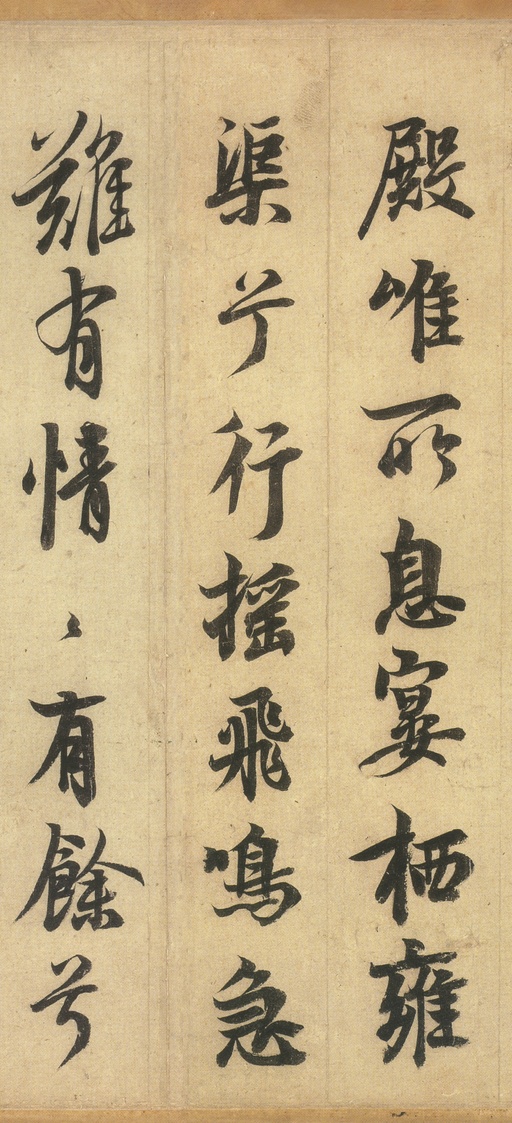 殿唯所息宴栖雍
渠兮行搖飛鳴急
難有情〻有餘兮